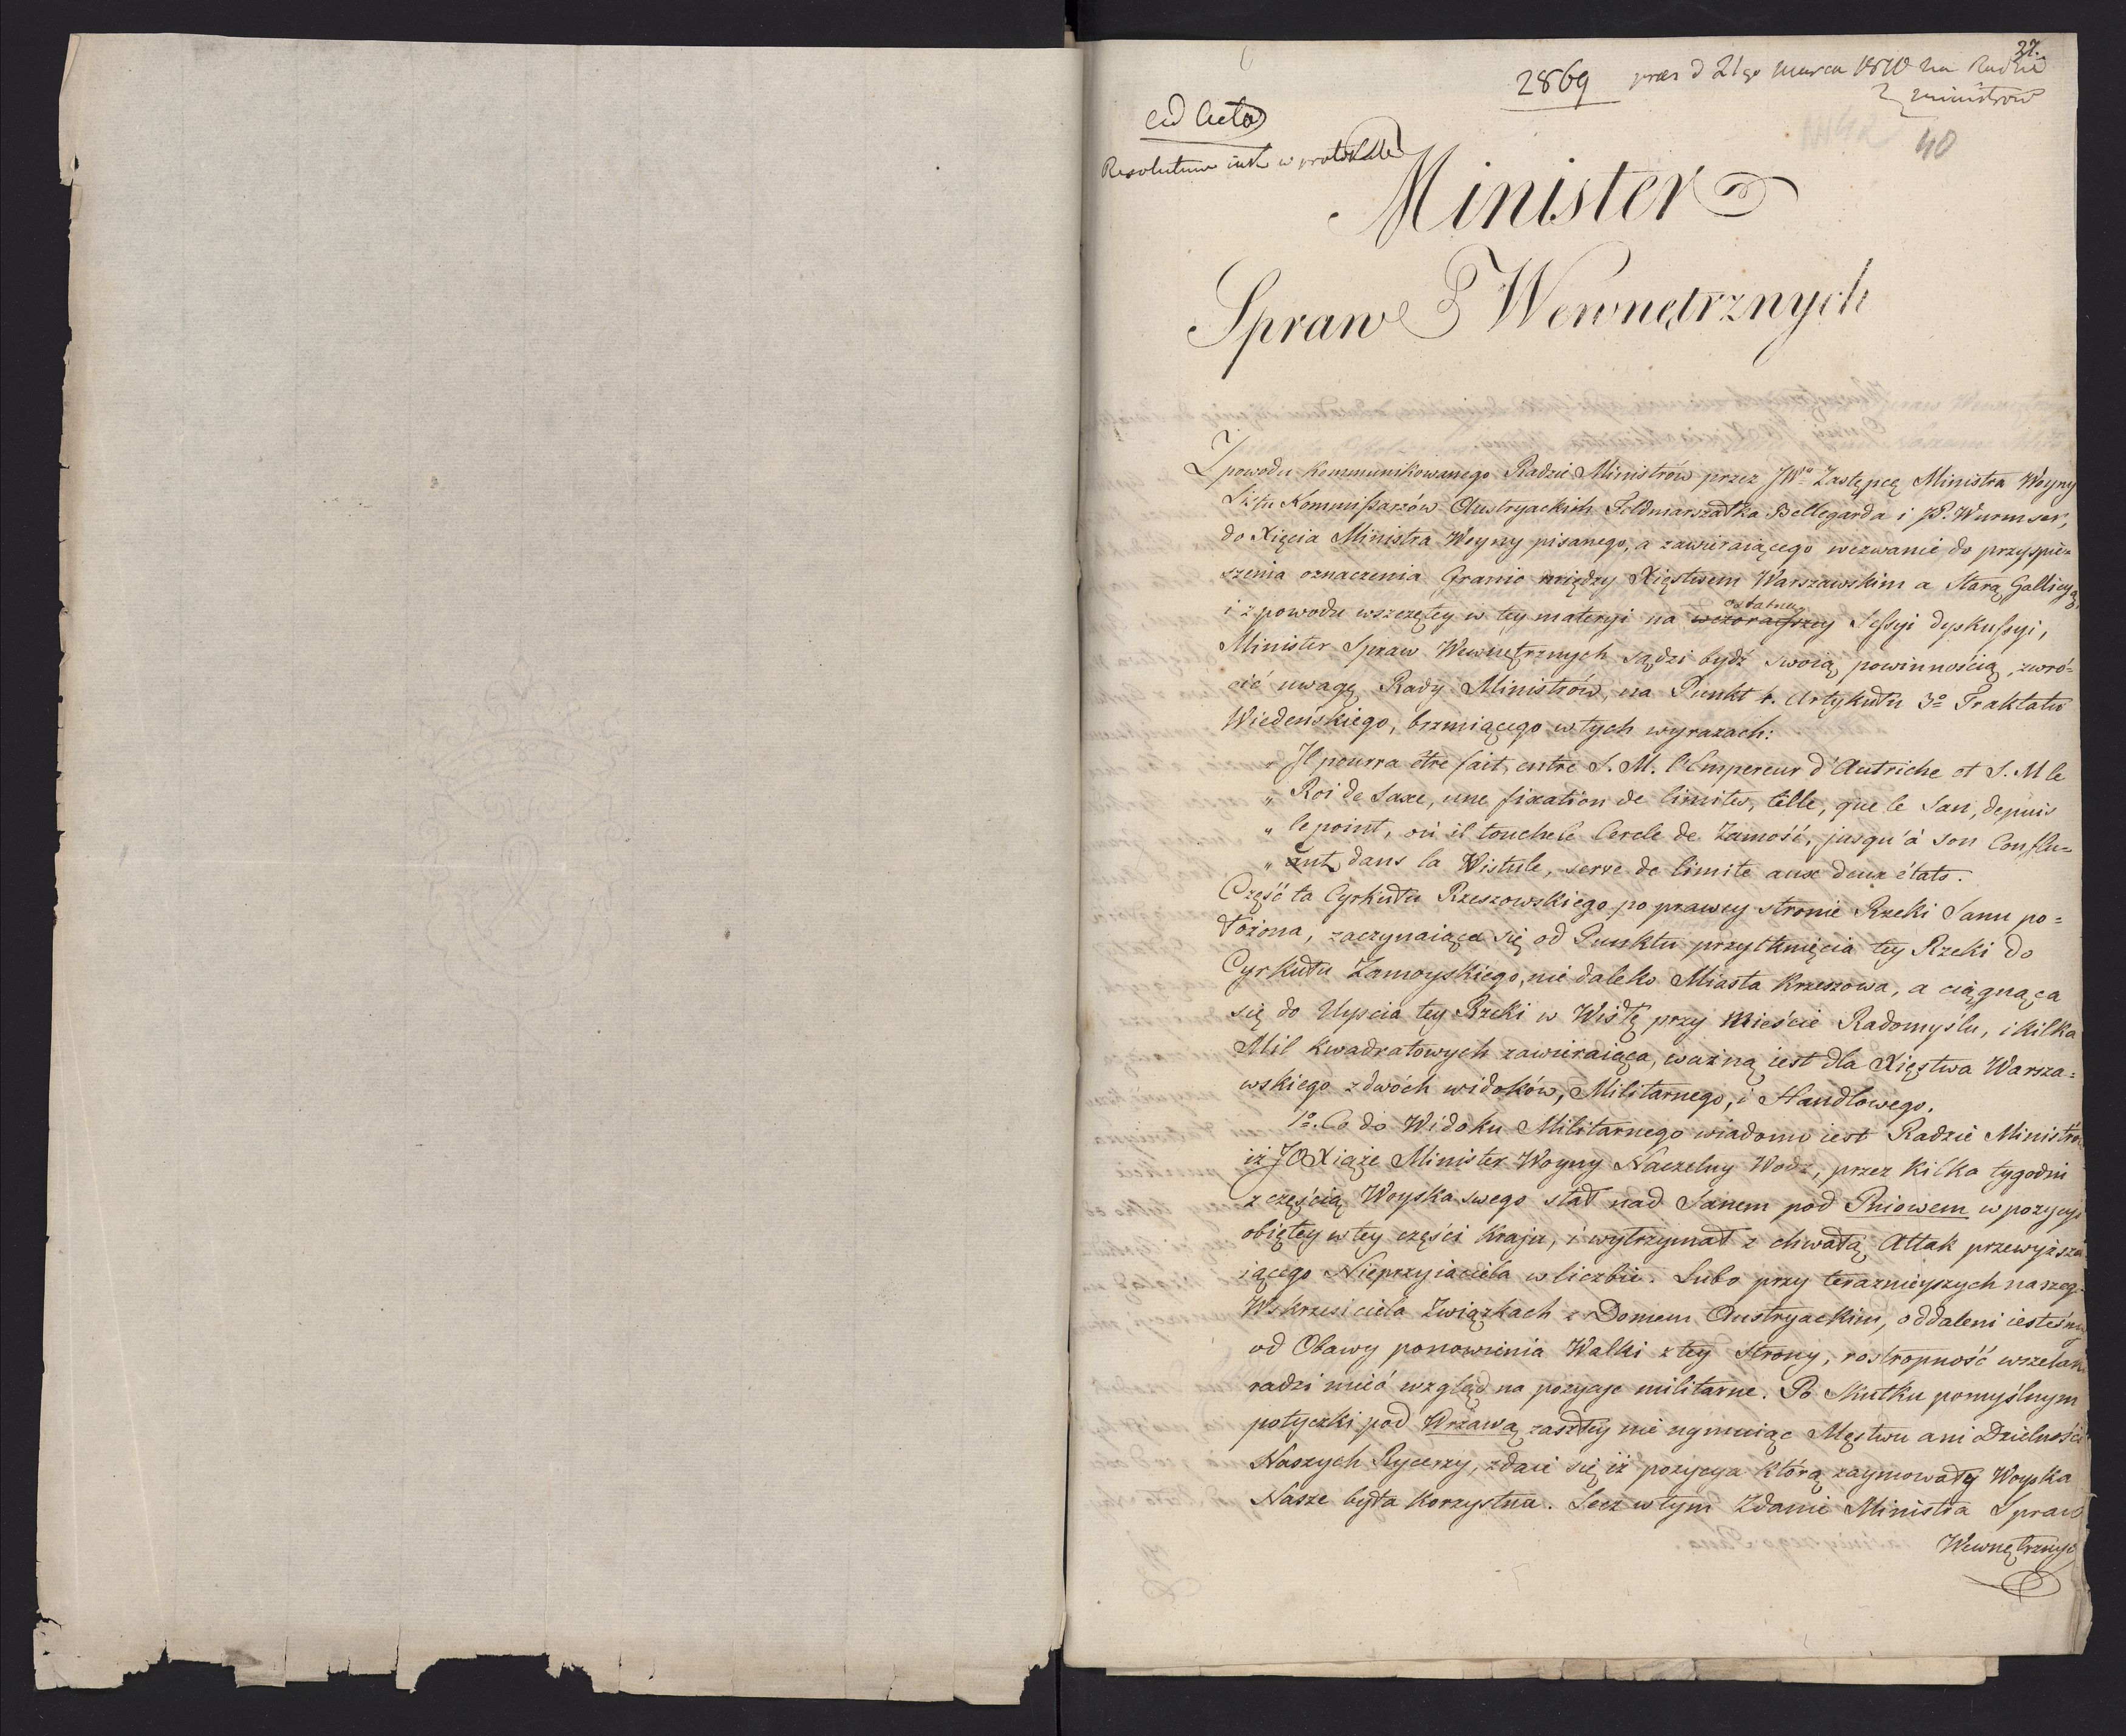 27.
2869 prez d 21go marca 1810 na Radzie
Ministrow
40
ad acta
Resolutum iak w protokule
Minister
Spraw Wewnętrznych
Z powodu kommunikowanego Radzie Ministrów przez JWo Zastępcę Ministra Woyny
Listu Kommissarzów Austryackich Feldmarszałka Bellegarda i JP. Wurmser,
do Xięcia Ministra Woyny pisanego, a zawieraiącego wezwanie do przyspie=
szenia oznaczenia Granic między Xięstwem Warszawskim a Starą Gallicyą,
ostatney
i z powodu wszczętey w tey materyi na wczoraiszey Sessyi dyskussyi,
Minister Spraw Wewnętrznych sądzi bydź swoią powinnością, zwró=
cić uwagę Rady Ministrów, na Punkt 4. Artykułu 3o Traktatu
Wiedeńskiego, brzmiącego w tych wyrazach:
„ Il pourra être fait, entre S. M. l'Empereur d'Autriche et S. M le
„ Roi de Saxe, une fixation de limites, telle, que le San, depuis
„ le point, où il touche le Cercle de Zamość, jusqu'à son Conflu=
„ ant dans la Vistule, serve de limite aux deux états.
Część ta Cyrkułu Rzeszowskiego po prawey stronie Rzeki Sanu po=
łożona, zaczynaiąca się od Punktu przytknięcia tey Rzeki do
Cyrkułu Zamoyskiego, nie daleko Miasta Krzeszowa, a ciągnąca
się do Uyscia tey Rzeki w Wisłę przy Mieście Radomyslu, i kilka
Mil kwadratowych zawieraiąca, ważną iest dla Xięstwa Warsza=
wskiego z dwóch widoków, Militarnego, i Handlowego.
1o. Co do Widoku Militarnego wiadomo iest Radzie Ministrów
iż JO Xiąże Minister Woyny Naczelny Wodz, przez kilka tygodni
z częścią Woyska swego stał nad Sanem pod Pniowem w pozycyi
obiętey w tey części Kraju, i wytrzymał z chwałą Attak przewyższa
iącego Nieprzyiaciela w liczbie. Lubo przy teraznieyszych naszeg
Wskrzesiciela Związkach z Domem Austryackim, oddaleni iesteśmy
od Obawy ponowienia Walki z tey Strony, rostropność wszelako
radzi mieć wzgląd na pozycye militarne. Po Skutku pomyślnym
potyczki pod Wrzawą zaszłey nie uymuiąc Męstwu ani Dzielności
Naszych Rycerzy, zdaie się iż pozycya którą zaymowały Woyska
Nasze była korzystna. Lecz w tym Zdanie Ministra Spraw
Wewnętrznyc